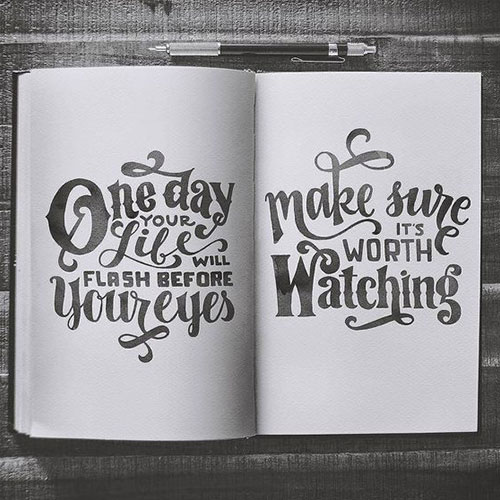 One day
YOUR
Life
WILL
FLASH BEFORE
Your eyes
make sure
IT'S
WORTH
Watching